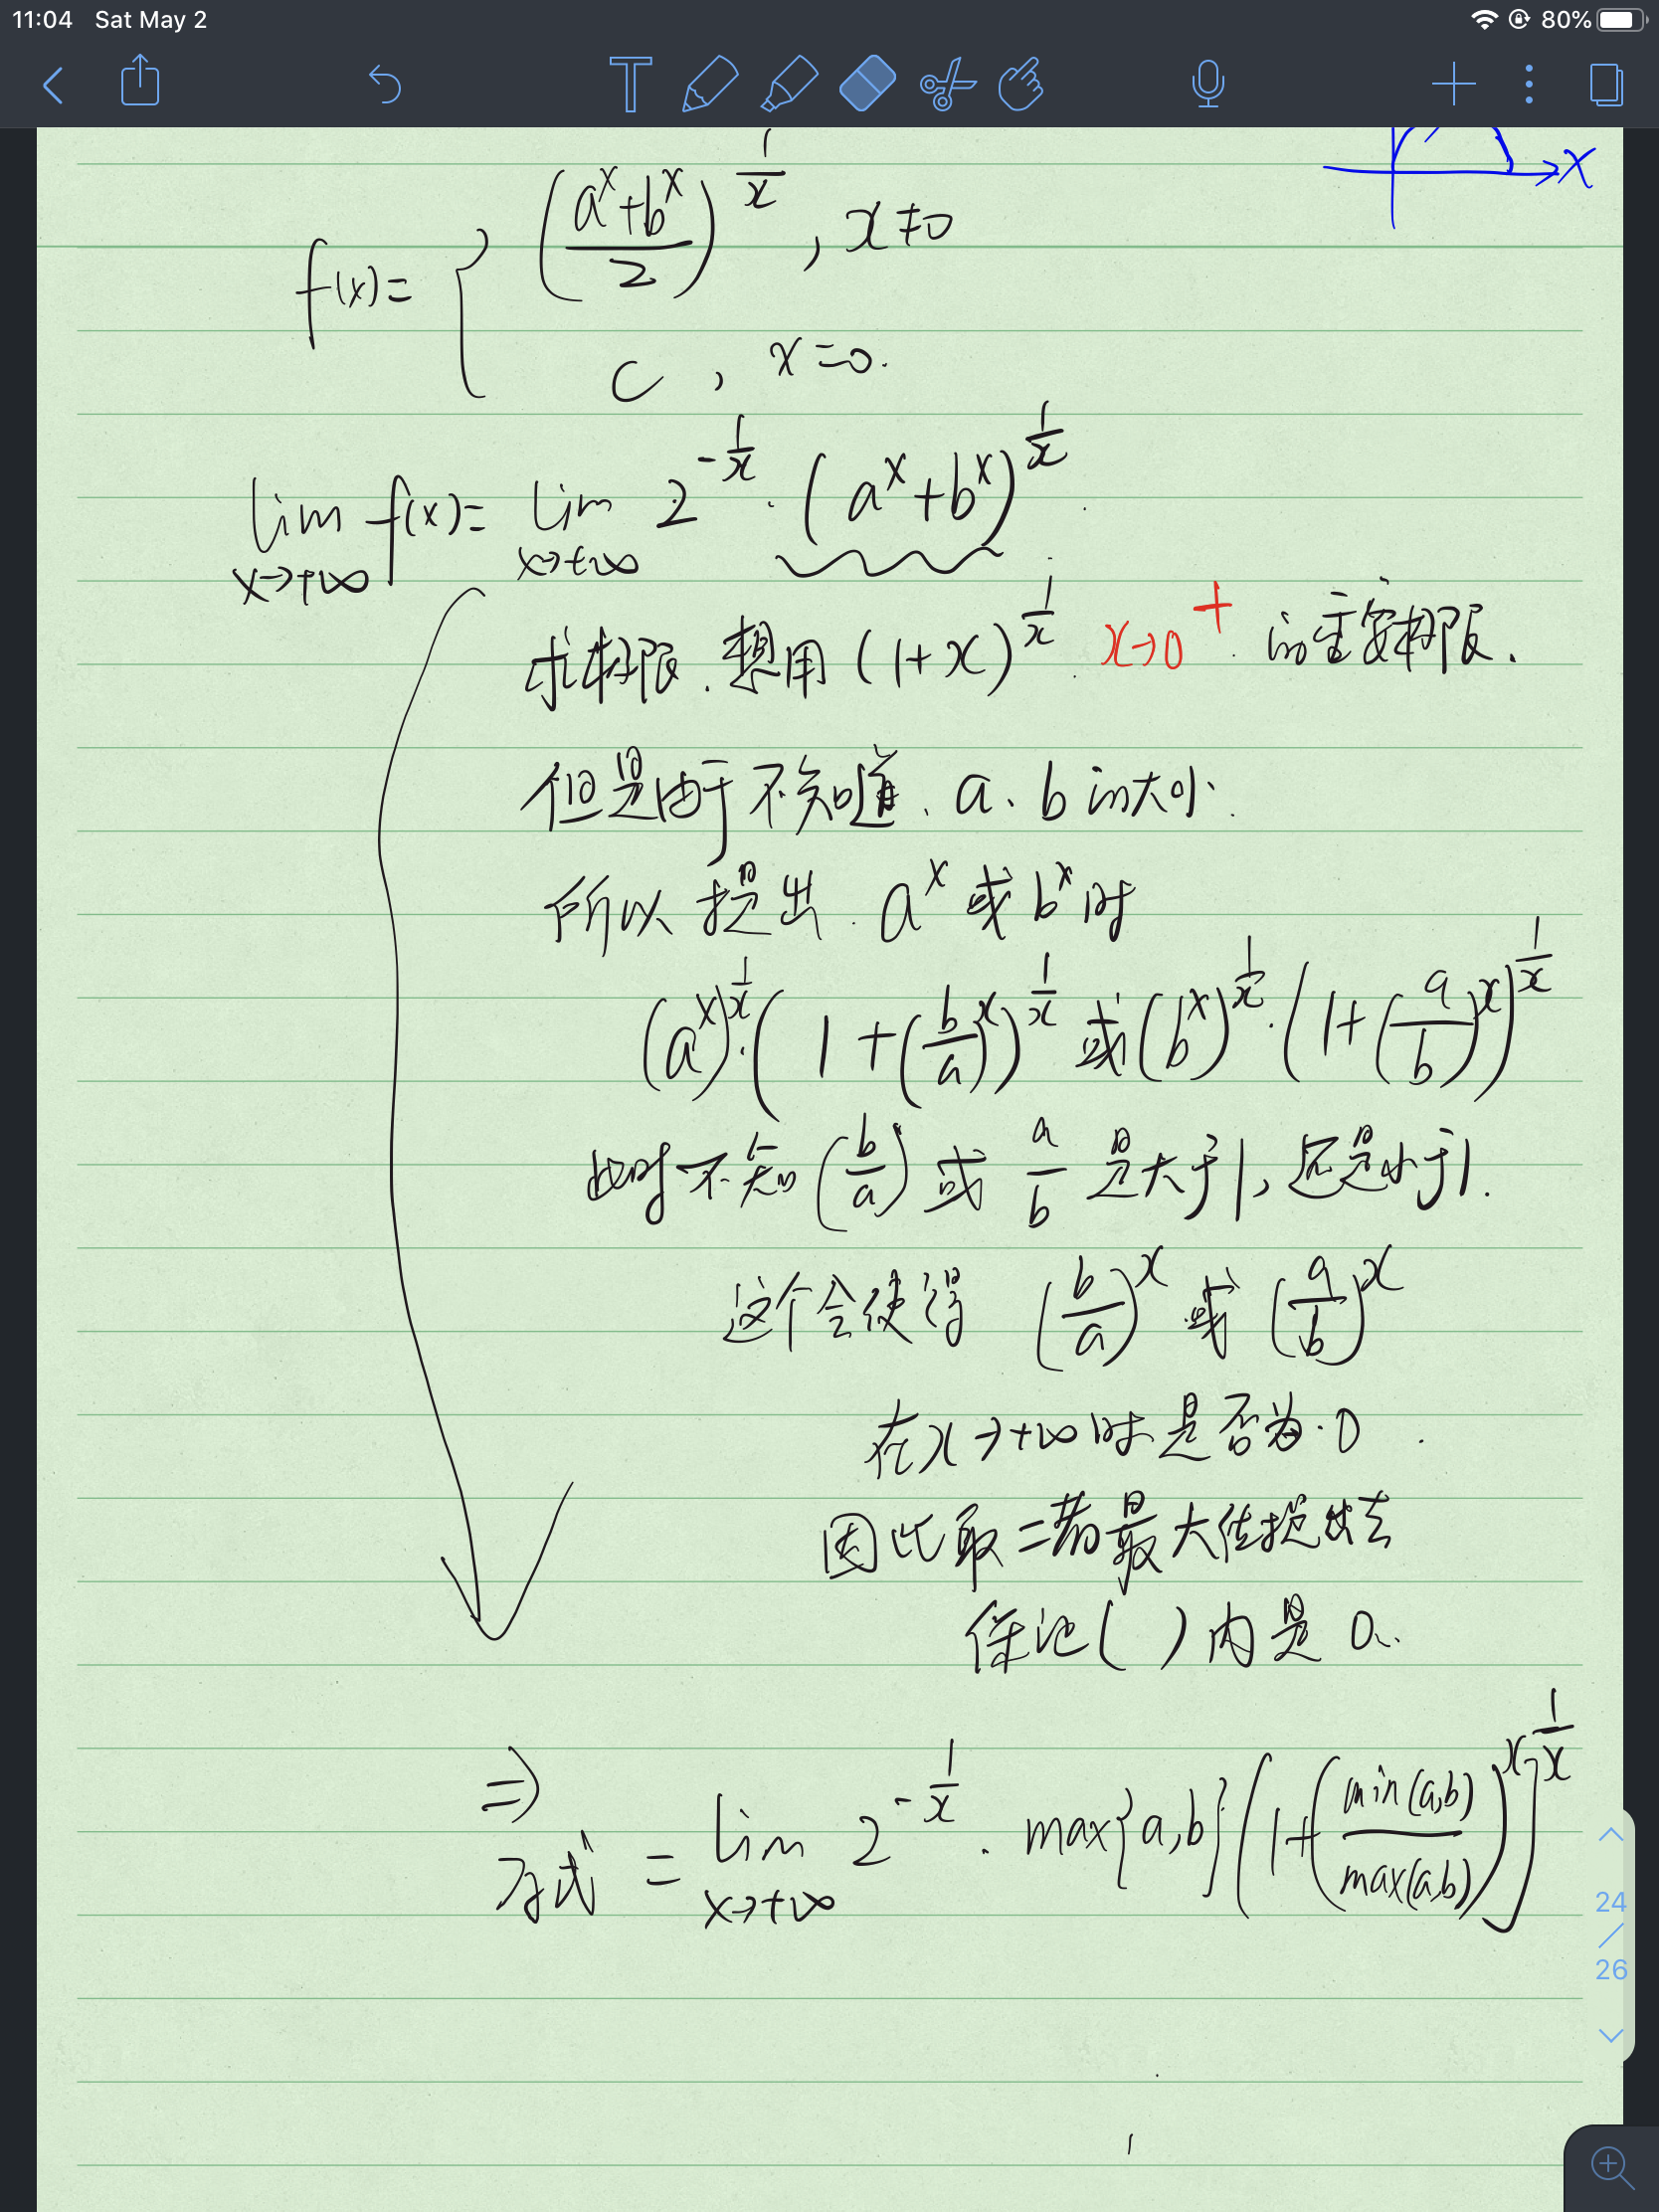 11:04 Sat May 2 80%
x
f(x)= { ((a^x+b^x)/2)^(1/x) , x≠0
c , x=0.
lim x→+∞ f(x)= lim x→+∞ 2^(-1/x) · (a^x+b^x)^(1/x)
求极限.想用 (1+x)^(1/x) x→0^+ 的重要极限.
但是由于不知道、a、b的大小.
所以提出 a^x 或 b^x 时
(a^x)^(1/x)·(1+(b/a)^x)^(1/x) 或 (b^x)^(1/x)·(1+(a/b)^x)^(1/x)
此时不知 (b/a) 或 a/b 是大于1,还是小于1.
这个会使得 (b/a)^x 或 (a/b)^x
在x→+∞时是否为0.
因此取二者最大值提出去
保证( )内是0.
⇒
方式 = lim x→+∞ 2^(-1/x) · max{a,b} (1+(min(a,b)/max(a,b))^x]^(1/x)
24
/
26